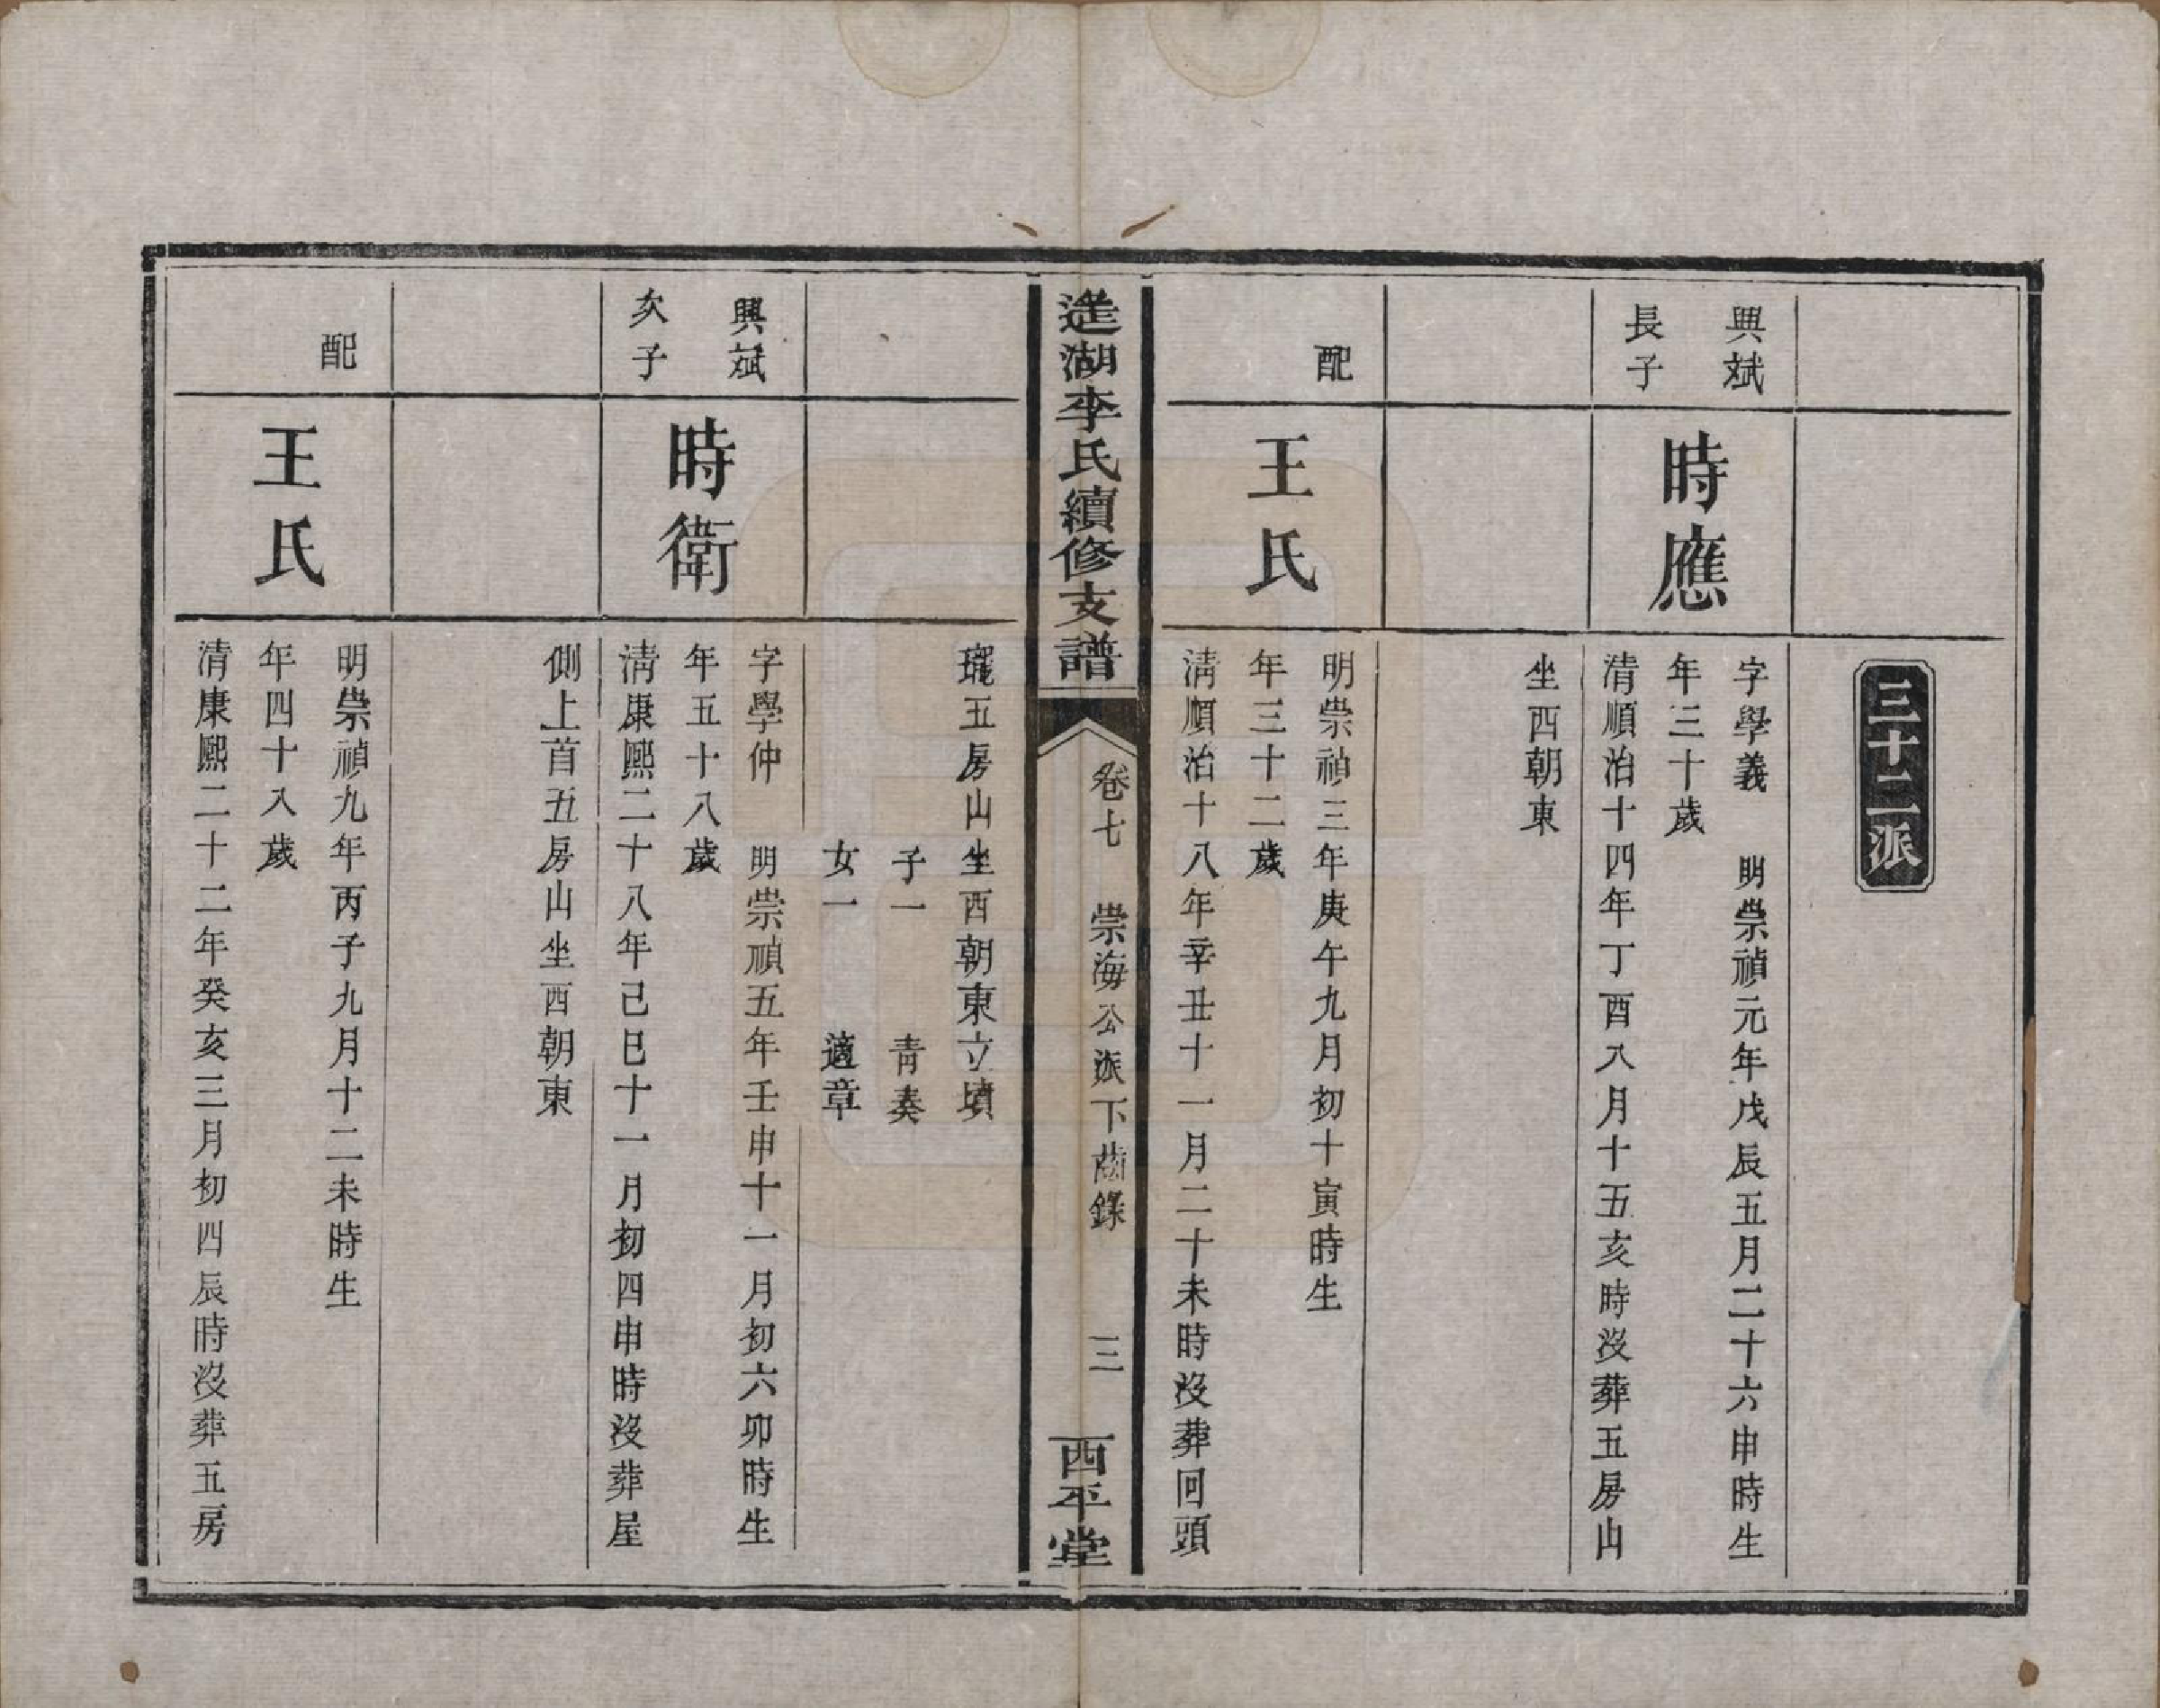 三十二派
興斌
長子
時應
字學義 明崇禎元年戊辰五月二十六申時生
年三十歲
清順治十四年丁酉八月十五亥時沒葬五房山
坐西朝東
配
王氏
明崇禎三年庚午九月初十寅時生
年三十二歲
清順治十八年辛丑十一月二十未時沒葬回頭
湖李氏續修支譜
卷七 崇海公派下齒錄 三
西平堂
瓏五房山坐西朝東立墳
子一 青奏
女一 適章
興斌
次子
時衛
字學仲 明崇禎五年壬申十一月初六卯時生
年五十八歲
清康熙二十八年己巳十一月初四申時沒葬屋
側上首五房山坐西朝東
配
王氏
明崇禎九年丙子九月十二未時生
年四十八歲
清康熙二十二年癸亥三月初四辰時沒葬五房